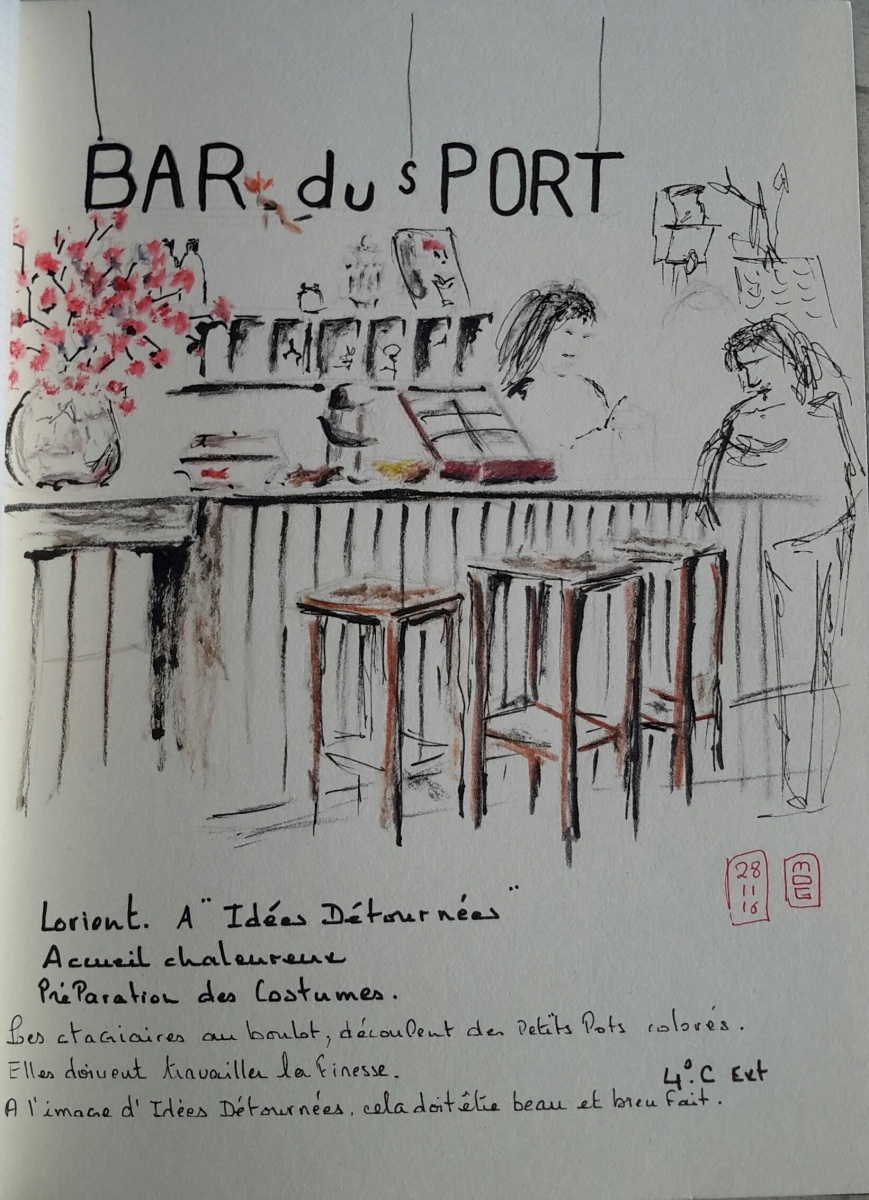 BAR du sPORT
28
11
16
MDG
Lorient. A "Idées Détournées"
Accueil chaleureux
PréParation des Costumes.
Les stagiaires au boulot, découpent des Petits Pots colorés.
Elles doivent travailler la finesse.
4°.C Ext
A l'image d'Idées Détournées, cela doit être beau et bien fait.